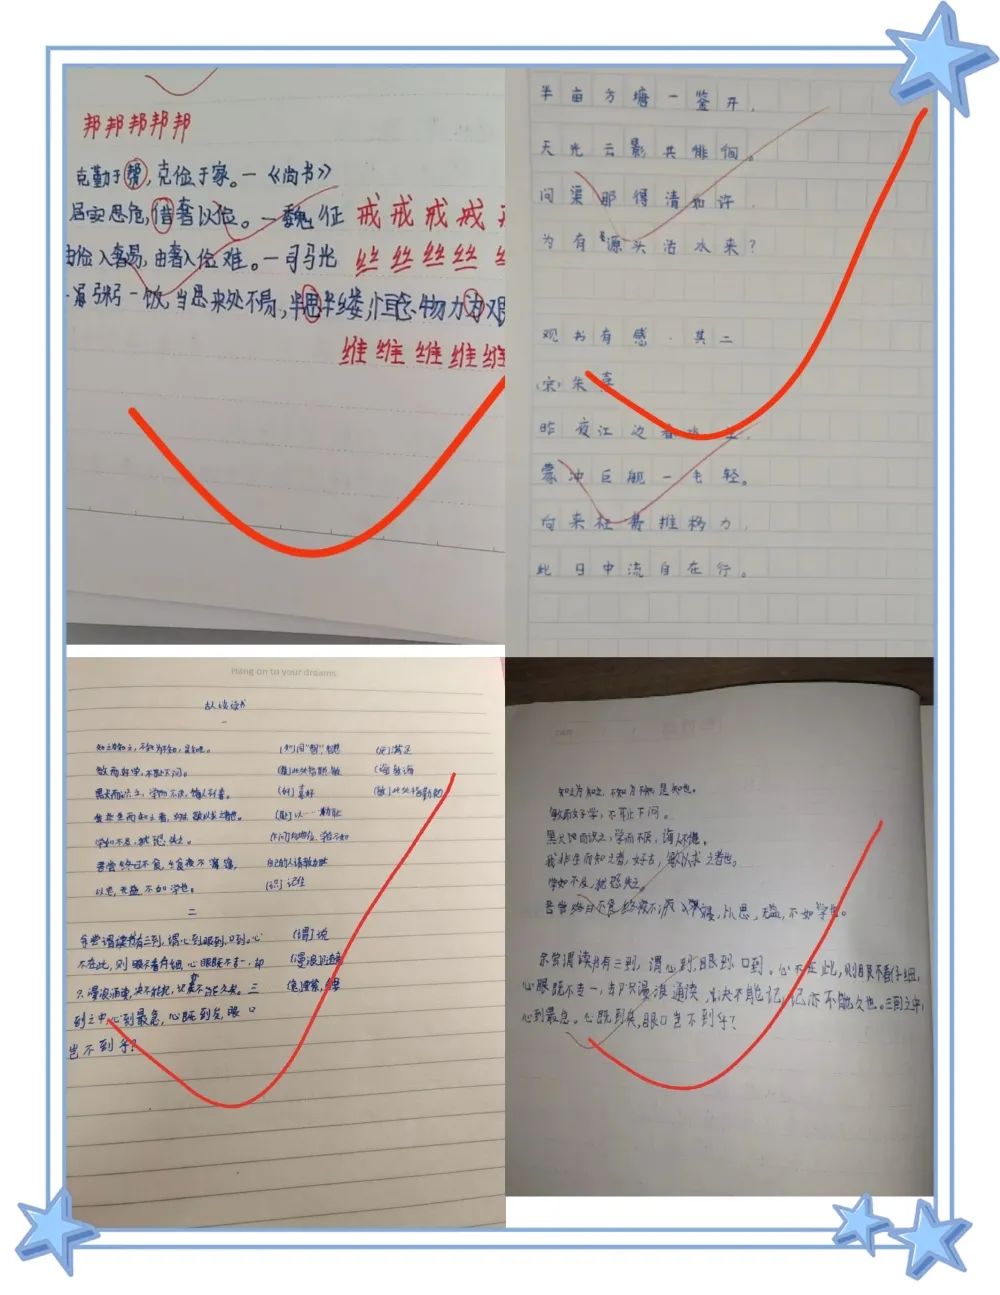 邦邦邦邦邦
克勤于帮,克俭于家。—《尚书》
居安思危,借奢以俭。—魏征
戒戒戒戒
由俭入奢易,由奢入俭难。—司马光
丝丝丝丝
一粥一饭,当思来处不易,半思半缕,恒念物力为艰
维维维维维
半亩方塘一鉴开,
天光云影共徘徊。
问渠那得清如许,
为有源头活水来?
观书有感·其二
(宋)朱熹
昨夜江边春水生,
蒙冲巨舰一毛轻。
向来枉费推移力,
此日中流自在行。
Hang on to your dreams
古人谈读书
一
知之为知之,不知为不知,是知也。
(知)同"智"智慧
敏而好学,不耻下问。
默而识之,学而不厌,诲人不倦。
(好)喜好
我非生而知之者,好古,敏以求之者也。
学如不及,犹恐失之。
吾尝终日不食,终夜不寝,
以思,无益,不如学也。
(识)记住
二
余尝谓读书有三到,谓心到眼到,口到。心
(谓)说
不在此,则眼不看仔细,心眼既不专一,却
只漫浪诵读,决不能记,记亦不能久也。三
到之中,心到最急,心既到矣,眼口
岂不到乎?
知之为知之,不知为不知,是知也。
敏而好学,不耻下问。
默而识之,学而不厌,诲人不倦。
我非生而知之者,好古,敏以求之者也。
学如不及,犹恐失之。
吾尝终日不食,终夜不寝,以思,无益,不如学也。
余尝谓读书有三到,谓心到,眼到,口到。心不在此,则眼不看仔细,
心眼既不专一,却只漫浪诵读,决不能记,记亦不能久也。三到之中,
心到最急。心既到矣,眼口岂不到乎?